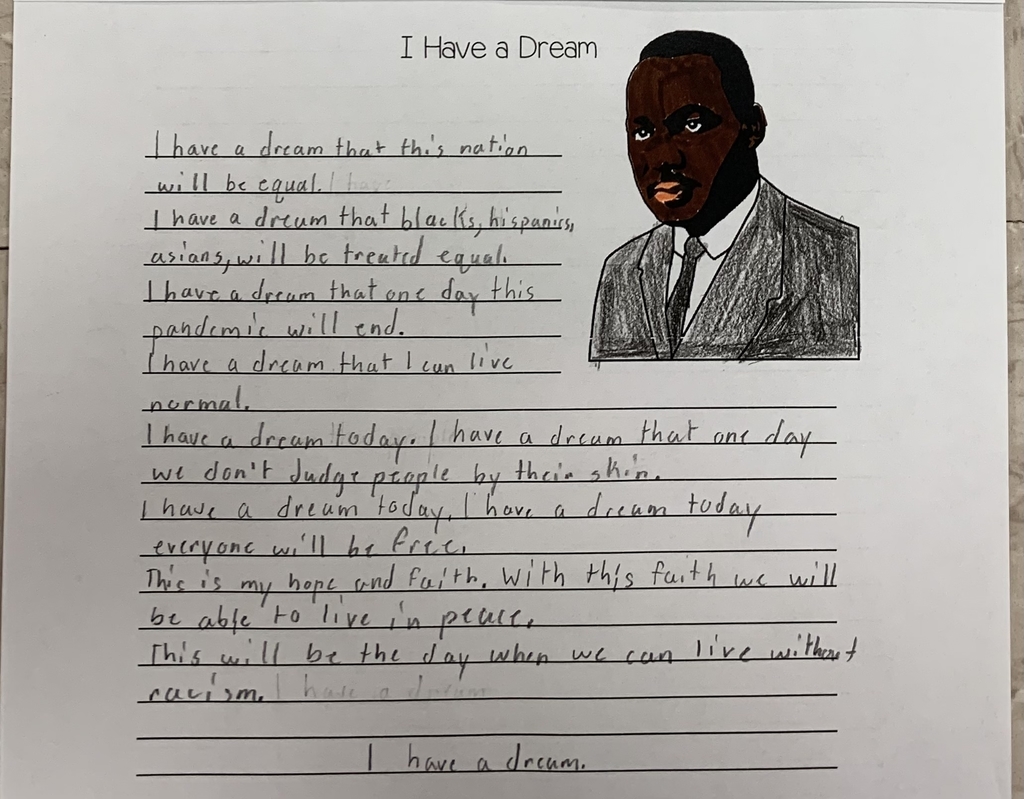 I Have a Dream
I have a dream that this nation
will be equal. I have
I have a dream that blacks, hispanics,
asians, will be treated equal.
I have a dream that one day this
pandemic will end.
I have a dream that I can live
normal.
I have a dream today. I have a dream that one day
we don't Judge people by their skin.
I have a dream today, I have a dream today
everyone will be free.
This is my hope and faith. With this faith we will
be able to live in peace.
This will be the day when we can live without
racism. I have a dream
I have a dream.